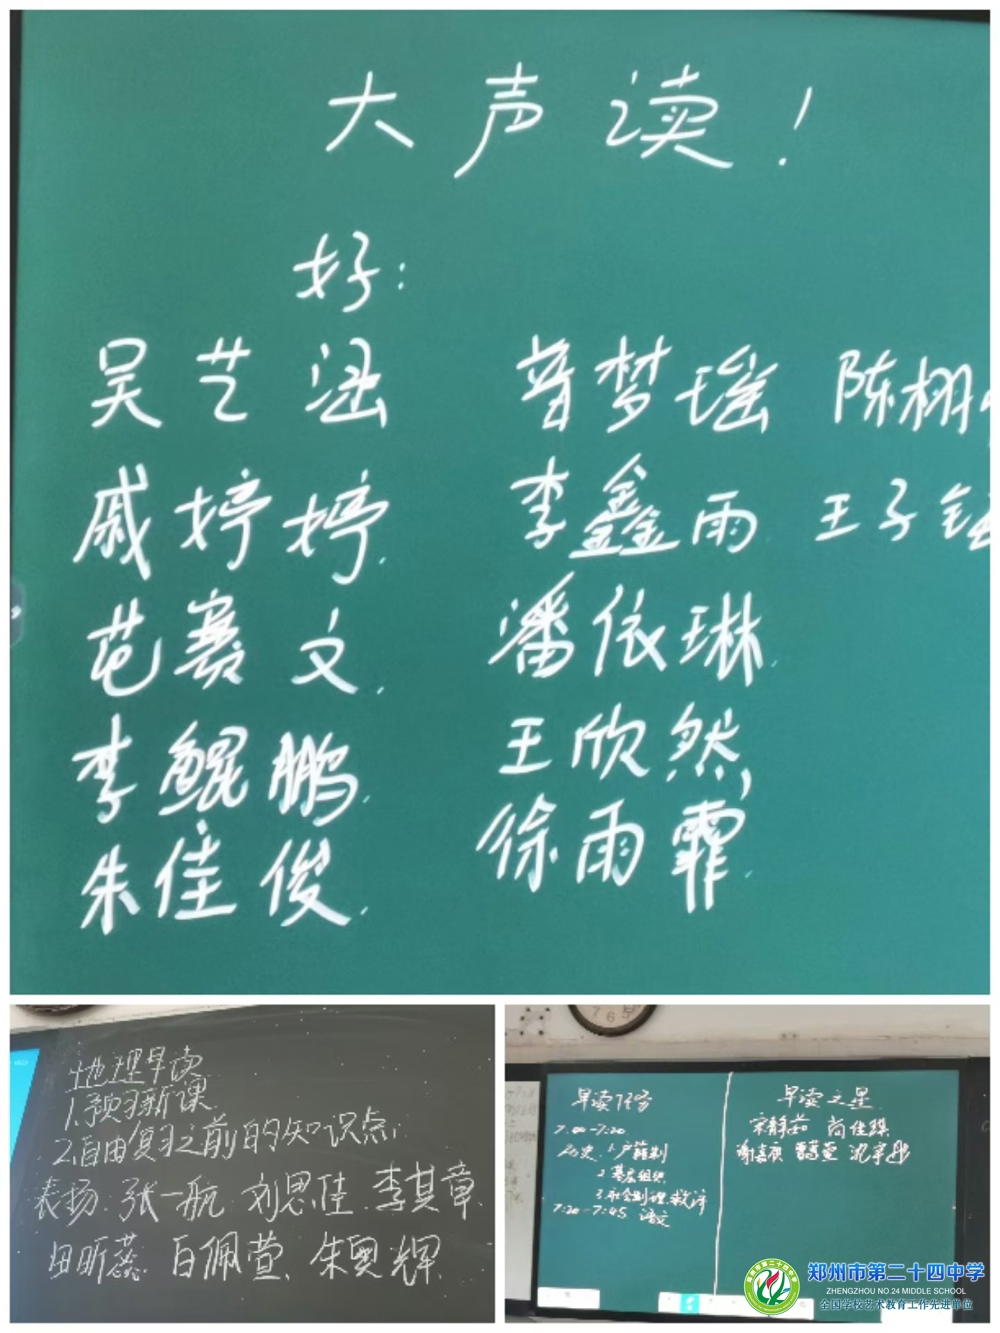 大声读！
好：
吴艺涵 普梦瑶 陈栩
戚婷婷. 李鑫雨 王子
范赛文. 潘依琳.
李鲲鹏. 王欣然,
朱佳俊. 徐雨霏.
地理早读
1.预习新课
2.自由复习之前的知识点.
表扬.张一航.刘思佳.李其章.
田昕蕊.白佩萱.朱奥辉.
7 6 5
早读任务
7:00-7:20
历史 1.户籍制
2.基层组织
3.社会治理.救济
7:20-7:45 语文
早读之星
宋静茹 尚佳
郑州市第二十四中学
ZHENGZHOU NO.24 MIDDLE SCHOOL
全国学校艺术教育工作先进单位